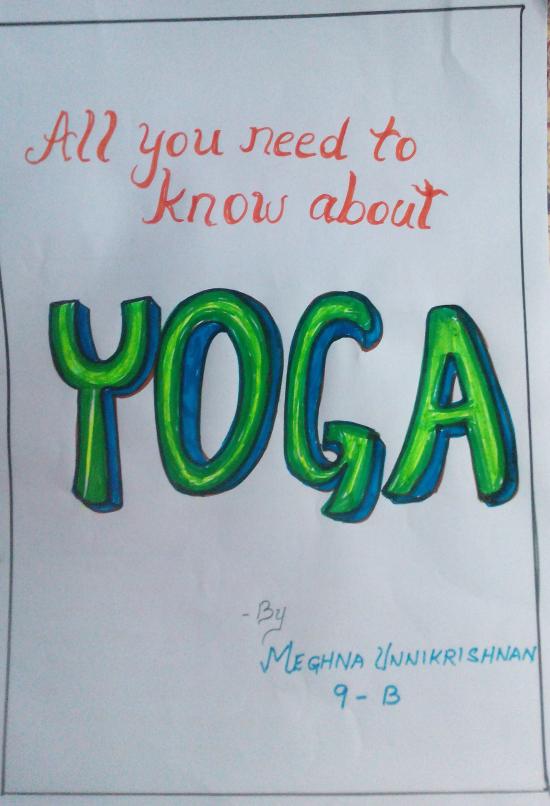 All you need to
know about
YOGA
- By
MEGHNA UNNIKRISHNAN
9 - B